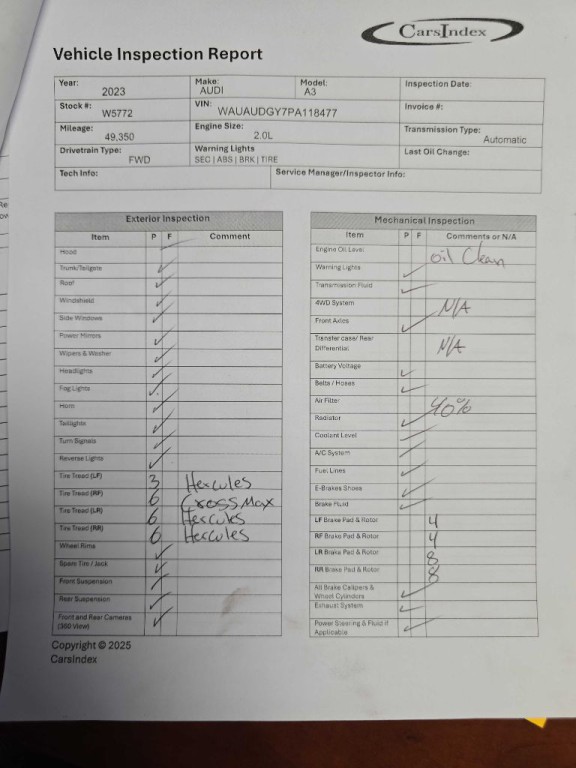 CarsIndex
Vehicle Inspection Report
Year: 2023 Make: AUDI Model: A3 Inspection Date:
Stock #: W5772 VIN: WAUAUDGY7PA118477 Invoice #:
Mileage: 49,350 Engine Size: 2.0L Transmission Type: Automatic
Drivetrain Type: FWD Warning Lights SEC | ABS | BRK | TIRE Last Oil Change:
Tech Info: Service Manager/Inspector Info:
Exterior Inspection
Item P F Comment
Hood
Trunk/Tailgate ✓
Roof ✓
Windshield ✓
Side Windows ✓
Power Mirrors ✓
Wipers & Washer ✓
Headlights ✓
Fog Lights ✓
Horn ✓
Taillights ✓
Turn Signals ✓
Reverse Lights ✓
Tire Tread (LF) 3 Hercules
Tire Tread (RF) 6 CrossMax
Tire Tread (LR) 6 Hercules
Tire Tread (RR) 6 Hercules
Wheel Rims ✓
Spare Tire / Jack ✓
Front Suspension ✓
Rear Suspension ✓
Front and Rear Cameras (360 View) ✓
Mechanical Inspection
Item P F Comments or N/A
Engine Oil Level oil Clean
Warning Lights ✓
Transmission Fluid ✓
4WD System N/A
Front Axles ✓
Transfer case/ Rear Differential N/A
Battery Voltage ✓
Belts / Hoses ✓
Air Filter 40%
Radiator ✓
Coolant Level ✓
A/C System ✓
Fuel Lines ✓
E-Brakes Shoes ✓
Brake Fluid ✓
LF Brake Pad & Rotor 4
RF Brake Pad & Rotor 4
LR Brake Pad & Rotor 8
RR Brake Pad & Rotor 8
All Brake Calipers & Wheel Cylinders ✓
Exhaust System ✓
Power Steering & Fluid if Applicable ✓
Copyright © 2025
CarsIndex